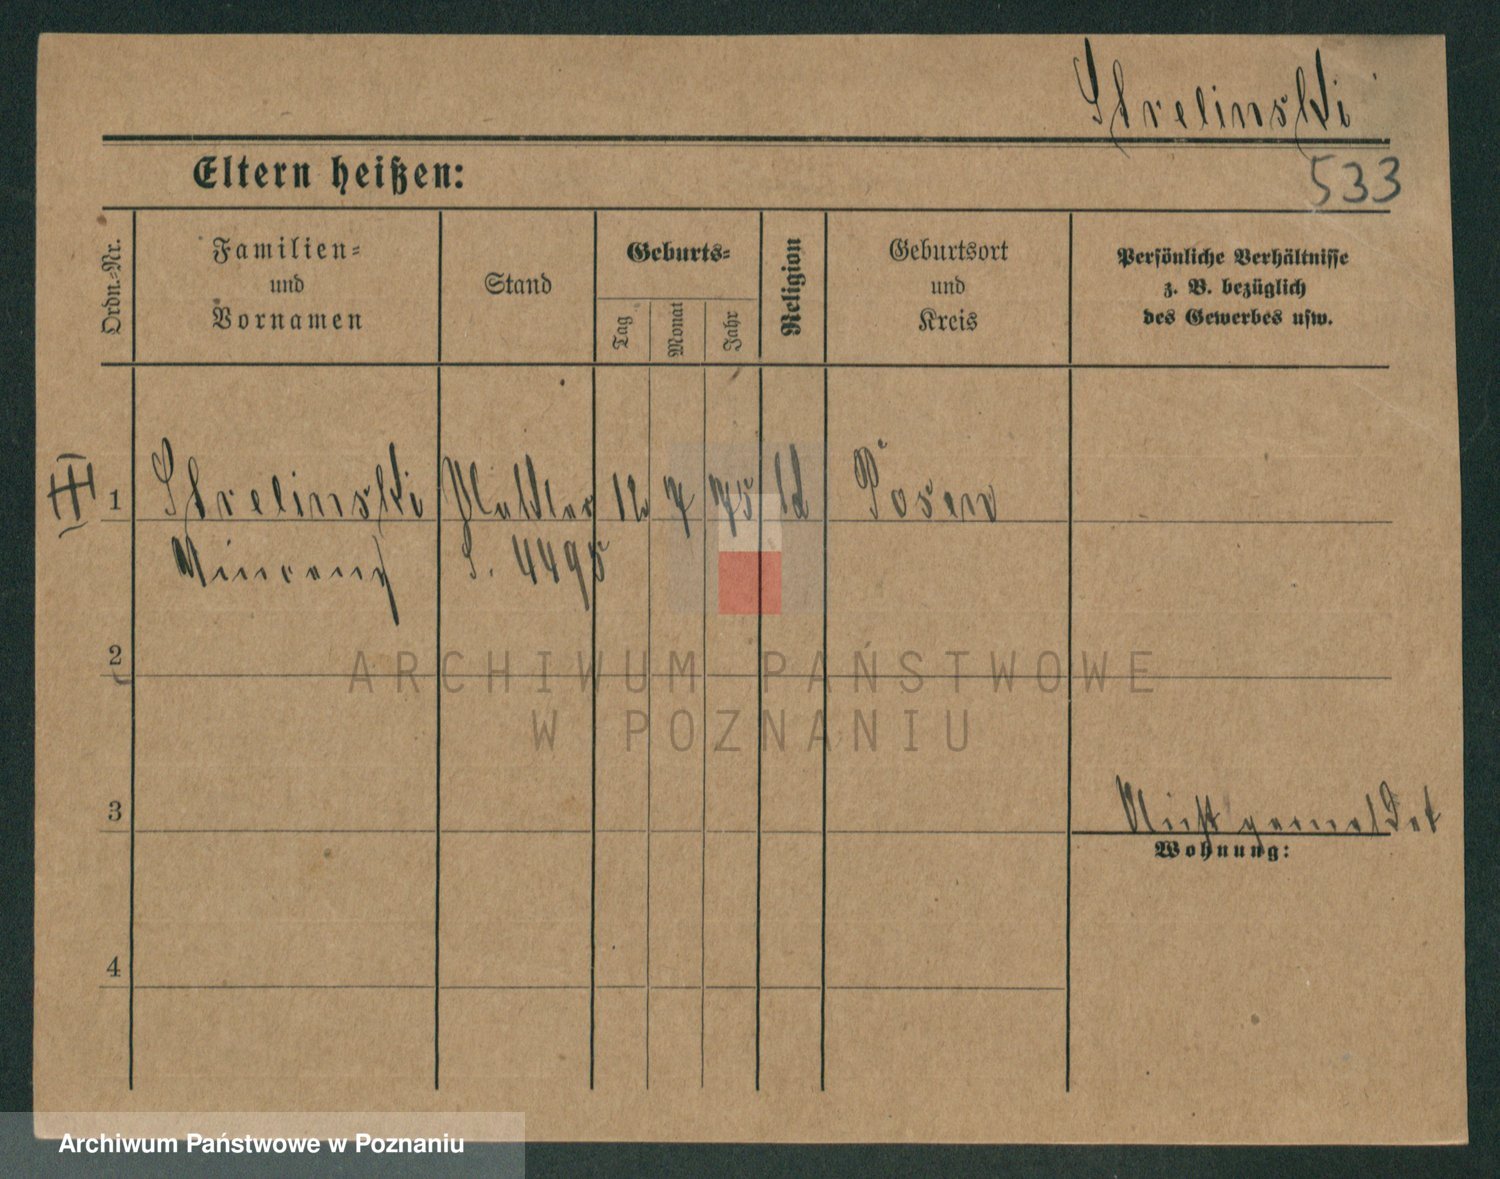 Strelinski
533
Eltern heißen:
Ordn.=Nr.
Familien=
und
Vornamen
Stand
Geburts=
Tag
Monat
Jahr
Religion
Geburtsort
und
Kreis
Persönliche Verhältnisse
z. B. bezüglich
des Gewerbes usw.
III
1 Strelinski 12 7 75 Posen
Vincenz S. 4495
2
ARCHIWUM PAŃSTWOWE
W POZNANIU
3
Nicht gemeldet
Wohnung:
4
Archiwum Państwowe w Poznaniu